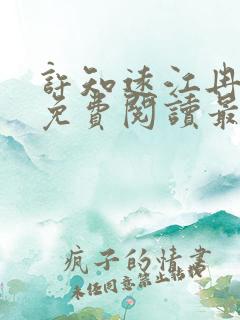 許知遠江冉
免費閱讀最
瘋子的情書
未经同意禁止转校